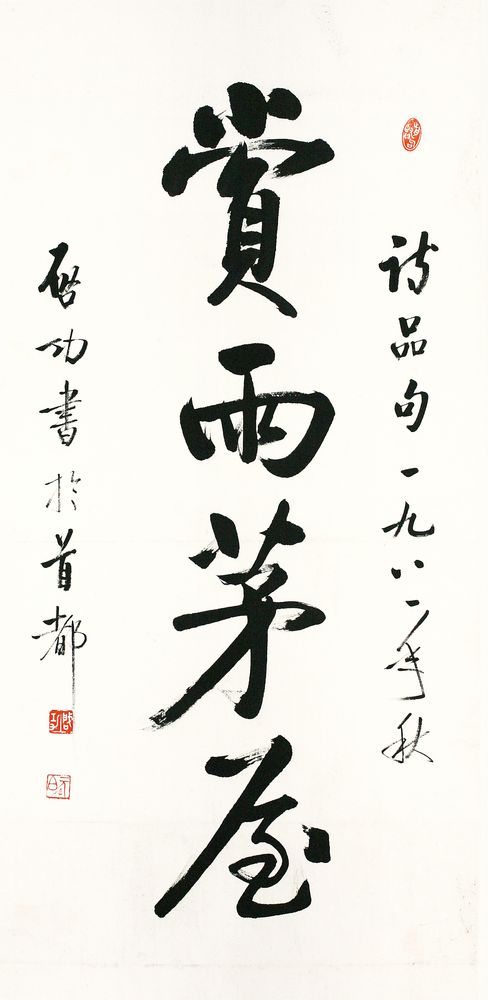 詩品句一九八一年秋
賞雨茅屋
啟功書於首都